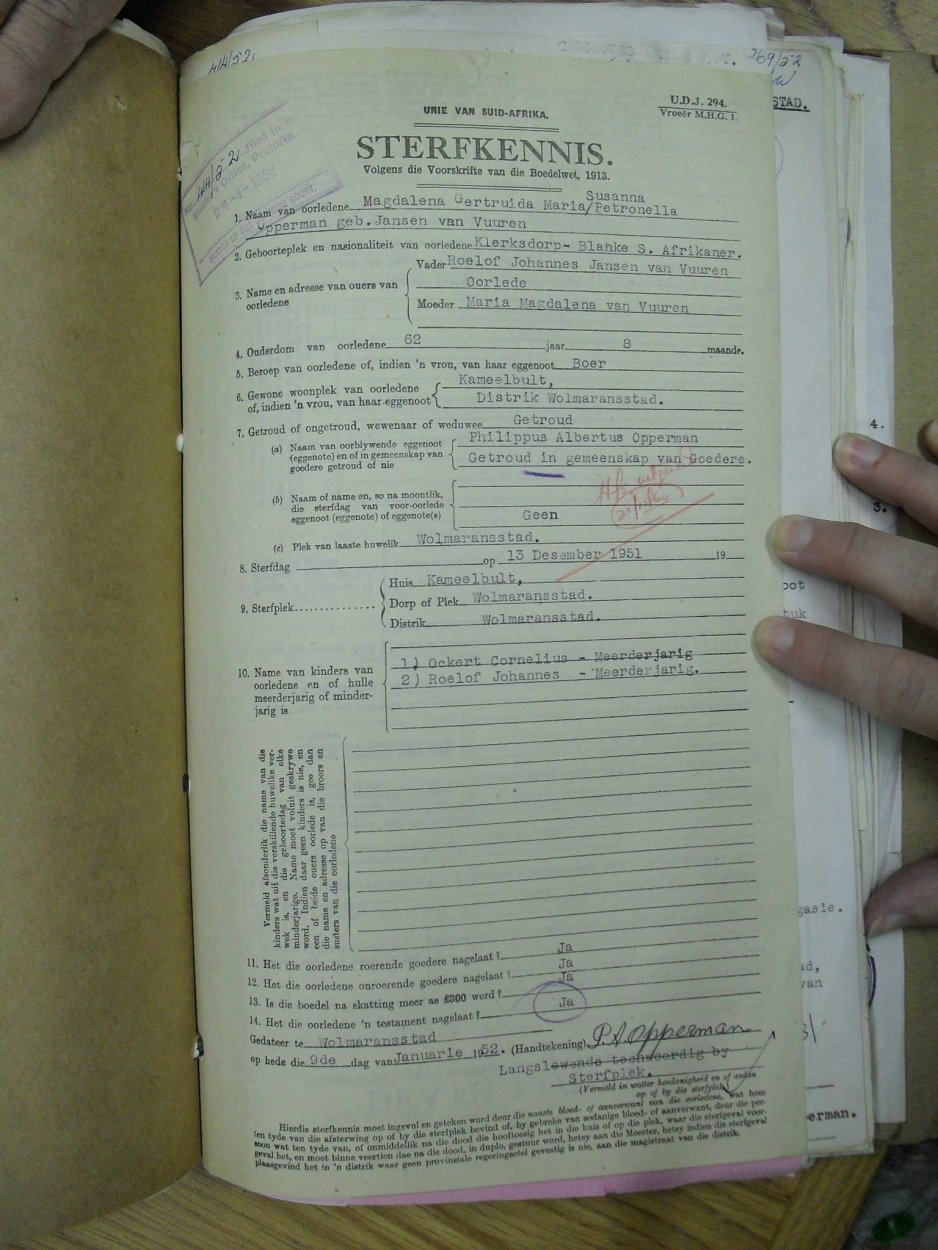 4/4/52.
269/52
STAD.
U.D.J. 294.
Vroeër M.H.G. 1.
UNIE VAN SUID-AFRIKA.
STERFKENNIS.
Volgens die Voorskrifte van die Boedelwet, 1913.
Master's Office, Pretoria.
24-4-1952
Susanna
1. Naam van oorledene Magdalena Gertruida Maria/Petronella
Opperman geb. Jansen van Vuuren
2. Geboorteplek en nasionaliteit van oorledene Klerksdorp- Blanke S. Afrikaner.
3. Name en adresse van ouers van oorledene
Vader Roelof Johannes Jansen van Vuuren
Oorlede
Moeder Maria Magdalena van Vuuren
4. Ouderdom van oorledene 62 jaar 8 maande.
5. Beroep van oorledene of, indien 'n vrou, van haar eggenoot Boer
6. Gewone woonplek van oorledene of, indien 'n vrou, van haar eggenoot
Kameelbult,
Distrik Wolmaransstad.
7. Getroud of ongetroud, wewenaar of weduwee Getroud
(a) Naam van oorblywende eggenoot
(eggenote) en of in gemeenskap van
goedere getroud of nie
Philippus Albertus Opperman
Getroud in gemeenskap van Goedere.
(b) Naam of name en, so na moontlik,
die sterfdag van voor-oorlede
eggenoot (eggenote) of eggenote(s)
Geen
(c) Plek van laaste huwelik Wolmaransstad.
8. Sterfdag op 13 Desember 1951 19
9. Sterfplek
Huis Kameelbult,
Dorp of Plek Wolmaransstad.
Distrik Wolmaransstad.
10. Name van kinders van
oorledene en of hulle
meerderjarig of minder-
jarig is
1) Ockert Cornelius - Meerderjarig
2) Roelof Johannes - Meerderjarig.
Vermeld afsonderlik die name van die
kinders wat uit die verskillende huwelike ver-
wek is, en die geboortedag van elke
minderjarige. Name moet voluit geskrywe
word. Indien daar geen kinders is nie, en
een of beide ouers oorlede is, gee dan
die name en adresse op van die broers en
susters van die oorledene
11. Het die oorledene roerende goedere nagelaat? Ja
12. Het die oorledene onroerende goedere nagelaat? Ja
13. Is die boedel na skatting meer as £300 werd? Ja
14. Het die oorledene 'n testament nagelaat? Ja
Gedateer te Wolmaransstad
op hede die 9de dag van Januarie 1952. (Handtekening) P. A. Opperman
Langslewende teenwoordig by
Sterfplek.
(Vermeld in watter hoedanigheid en of aldan
op of by die sterfplek)
Hierdie sterfkennis moet ingevul en geteken word deur die naaste bloed- of aanverwant van die oorledene, wat hom
ten tyde van die afsterwing op of by die sterfplek bevind of, by gebreke van sodanige bloed- of aanverwant, deur die per-
soon wat ten tyde van, of onmiddellik na die dood die hooftoesig het in die huis of op die plek, waar die sterfgeval voor-
geval het, en moet binne veertien dae na die dood, in duplo, gestuur word, hetsy aan die Meester, hetsy indien die sterfgeval
plaasgevind het in 'n distrik waar geen provinsiale regeringsetel gevestig is nie, aan die magistraat van die distrik.
4.
3.
oot
tuk
gasie.
ad,
van
erman.